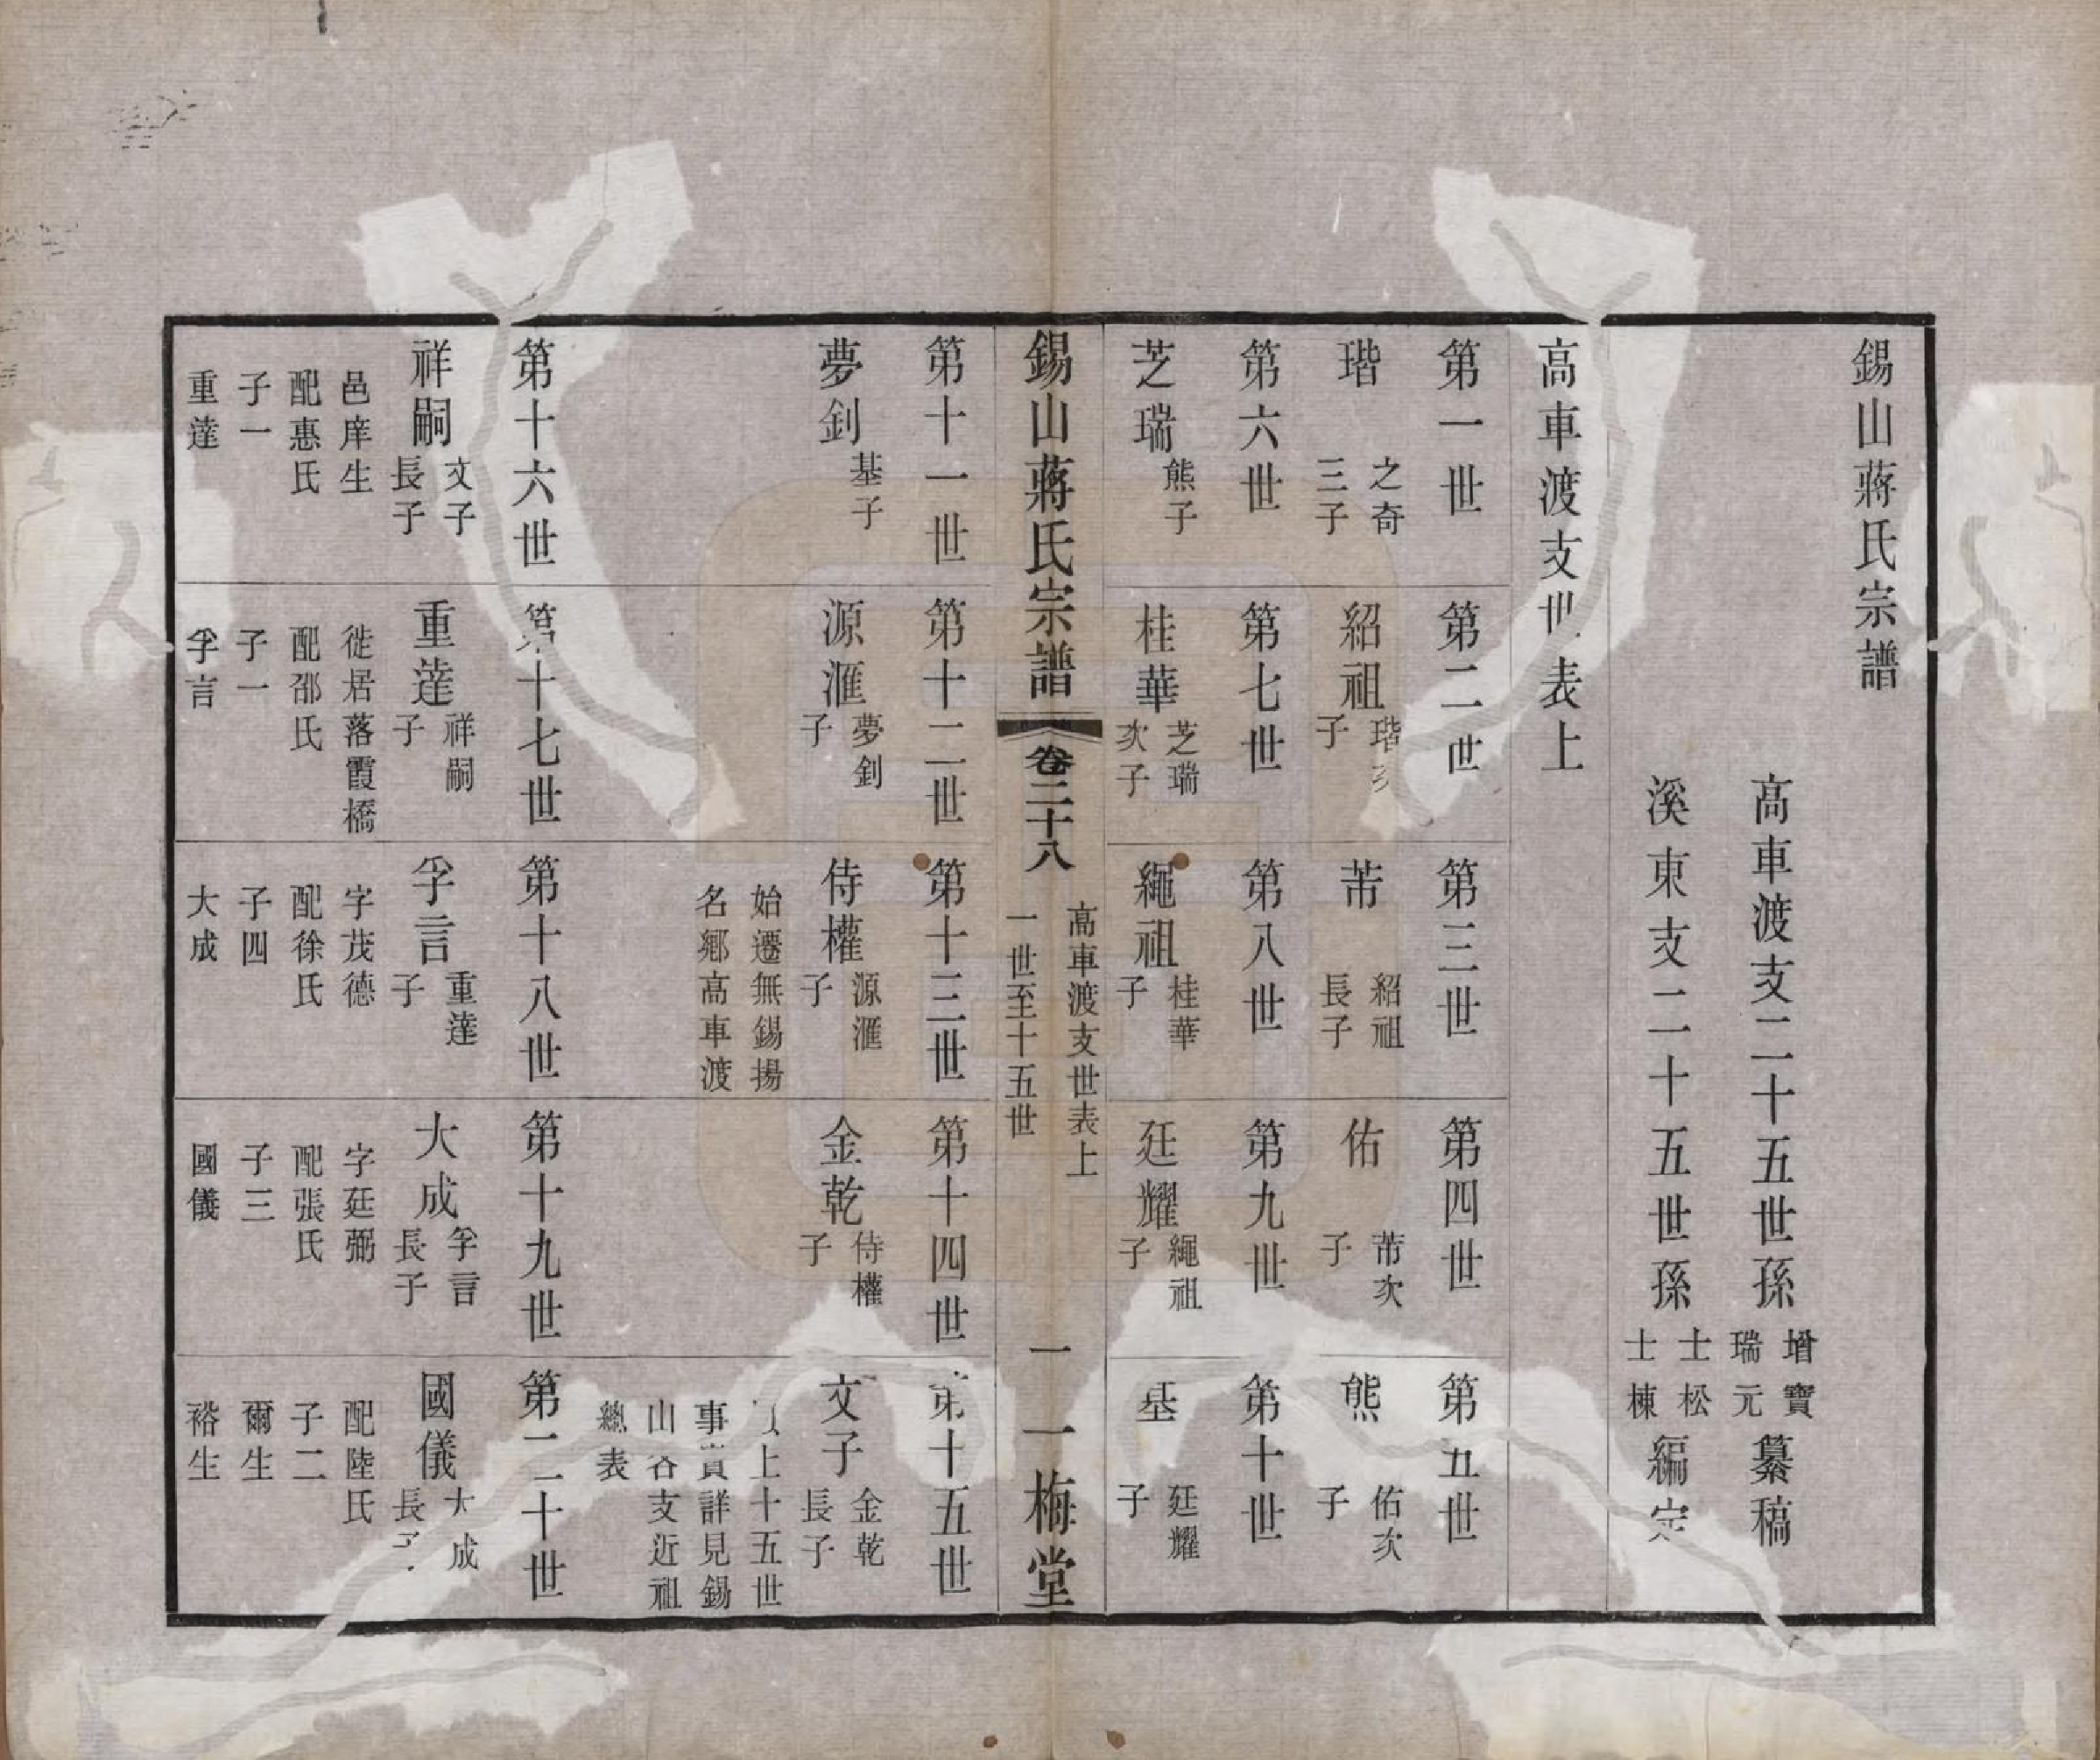 錫山蔣氏宗譜
高車渡支二十五世孫 增寶 瑞元 纂稿
溪東支二十五世孫 士松 士棟 編定
高車渡支世表上
第一世 第二世 第三世 第四世 第五世
瑎 之奇三子
紹祖 瑎次子
芾 紹祖長子
佑 芾次子
熊 佑次子
第六世 第七世 第八世 第九世 第十世
芝瑞 熊子
桂華 芝瑞次子
繩祖 桂華子
廷耀 繩祖子
基 廷耀子
錫山蔣氏宗譜 卷二十八 高車渡支世表上 一世至十五世 一 一梅堂
第十一世 第十二世 第十三世 第十四世 第十五世
夢釗 基子
源滙 夢釗子
侍權 源滙子
始遷無錫揚
名鄉高車渡
金乾 侍權子
文子 金乾長子
上十五世
事實詳見錫
山谷支近祖
總表
第十六世 第十七世 第十八世 第十九世 第二十世
祥嗣 文子長子
邑庠生
配惠氏
子一
重達
重達 祥嗣子
徙居落霞橋
配邵氏
子一
孚言
孚言 重達子
字茂德
配徐氏
子四
大成
大成 孚言長子
字廷弼
配張氏
子三
國儀
國儀 大成長子
配陸氏
子二
爾生
裕生